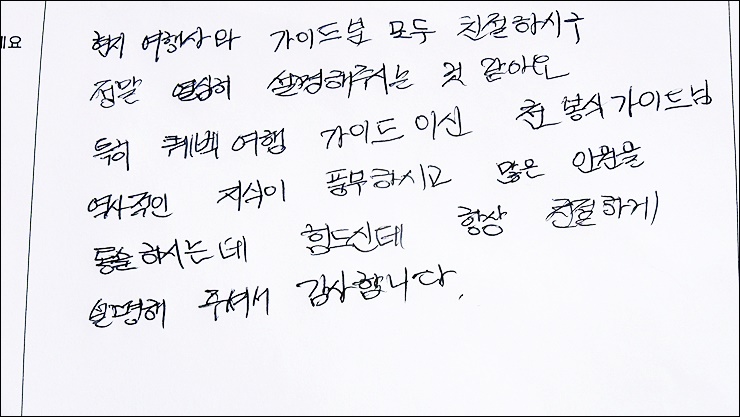 네요
현지 여행사와 가이드분 모두 친절하시구
정말 열심히 설명해주시는 것 같아요
특히 퀘벡여행 가이드이신 천봉식가이드님
역사적인 지식이 풍부하시고 많은 인원을
통솔하시는데 힘드신데 항상 친절하게
설명해 주셔서 감사합니다.